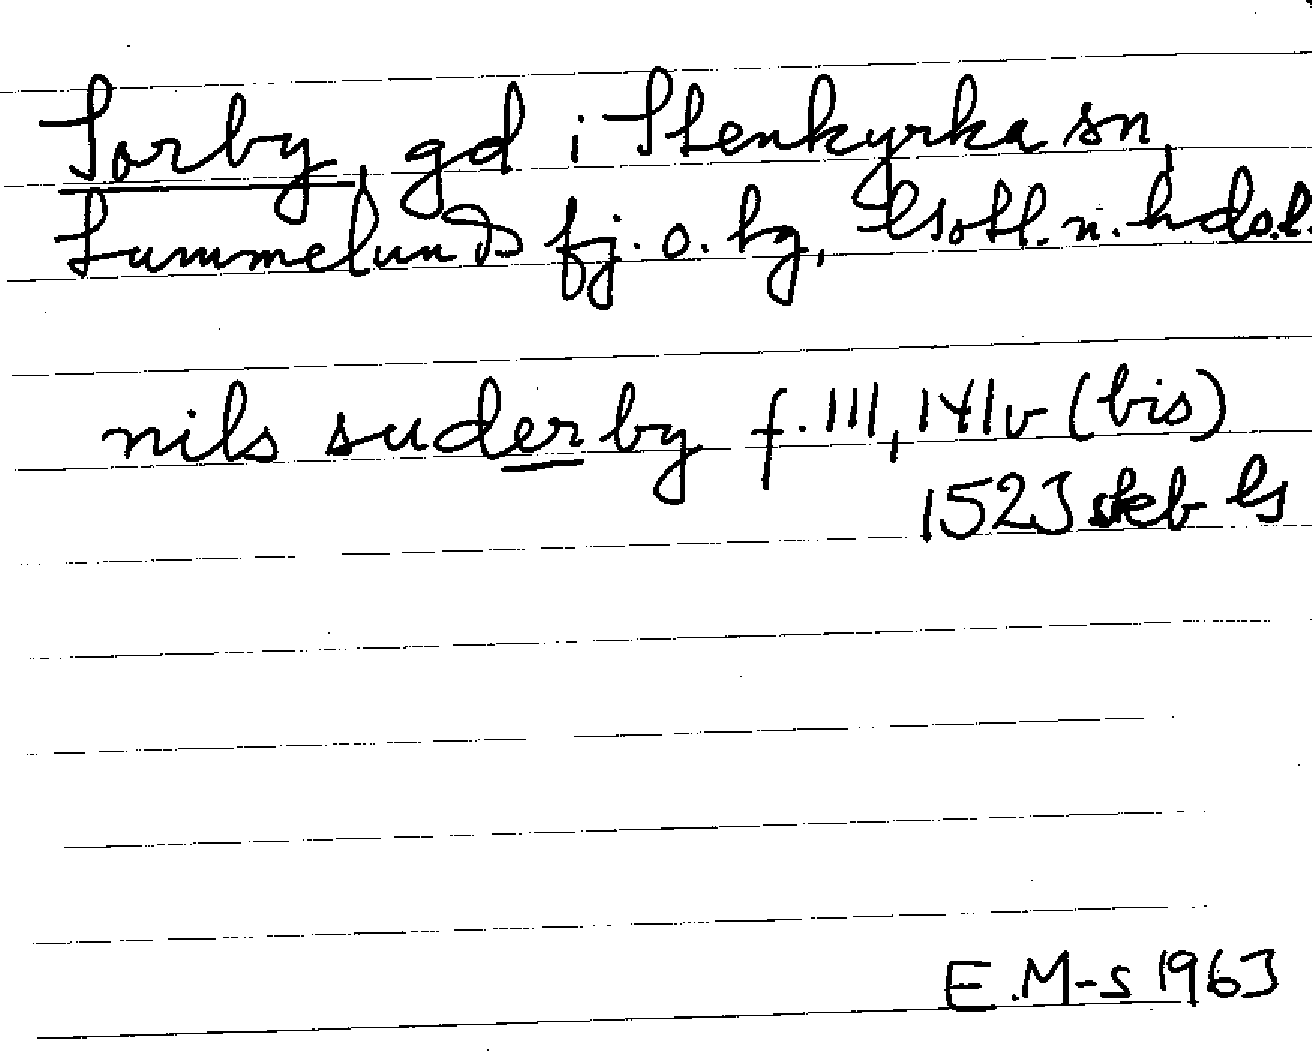 Sorby, gd i Stenkyrka sn,
Lummelunds fj. o. tg, Gotl. n. hds.l.
nils suderby f. 111, 141v (bis)
1523 skb G
E.M-s 1963